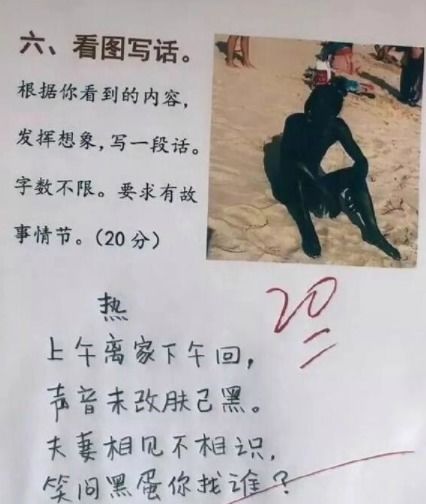 六、看图写话。
根据你看到的内容，
发挥想象，写一段话。
字数不限。要求有故
事情节。（20分）
20
热
上午离家下午回，
声音未改肤已黑。
夫妻相见不相识，
笑问黑蛋你找谁？